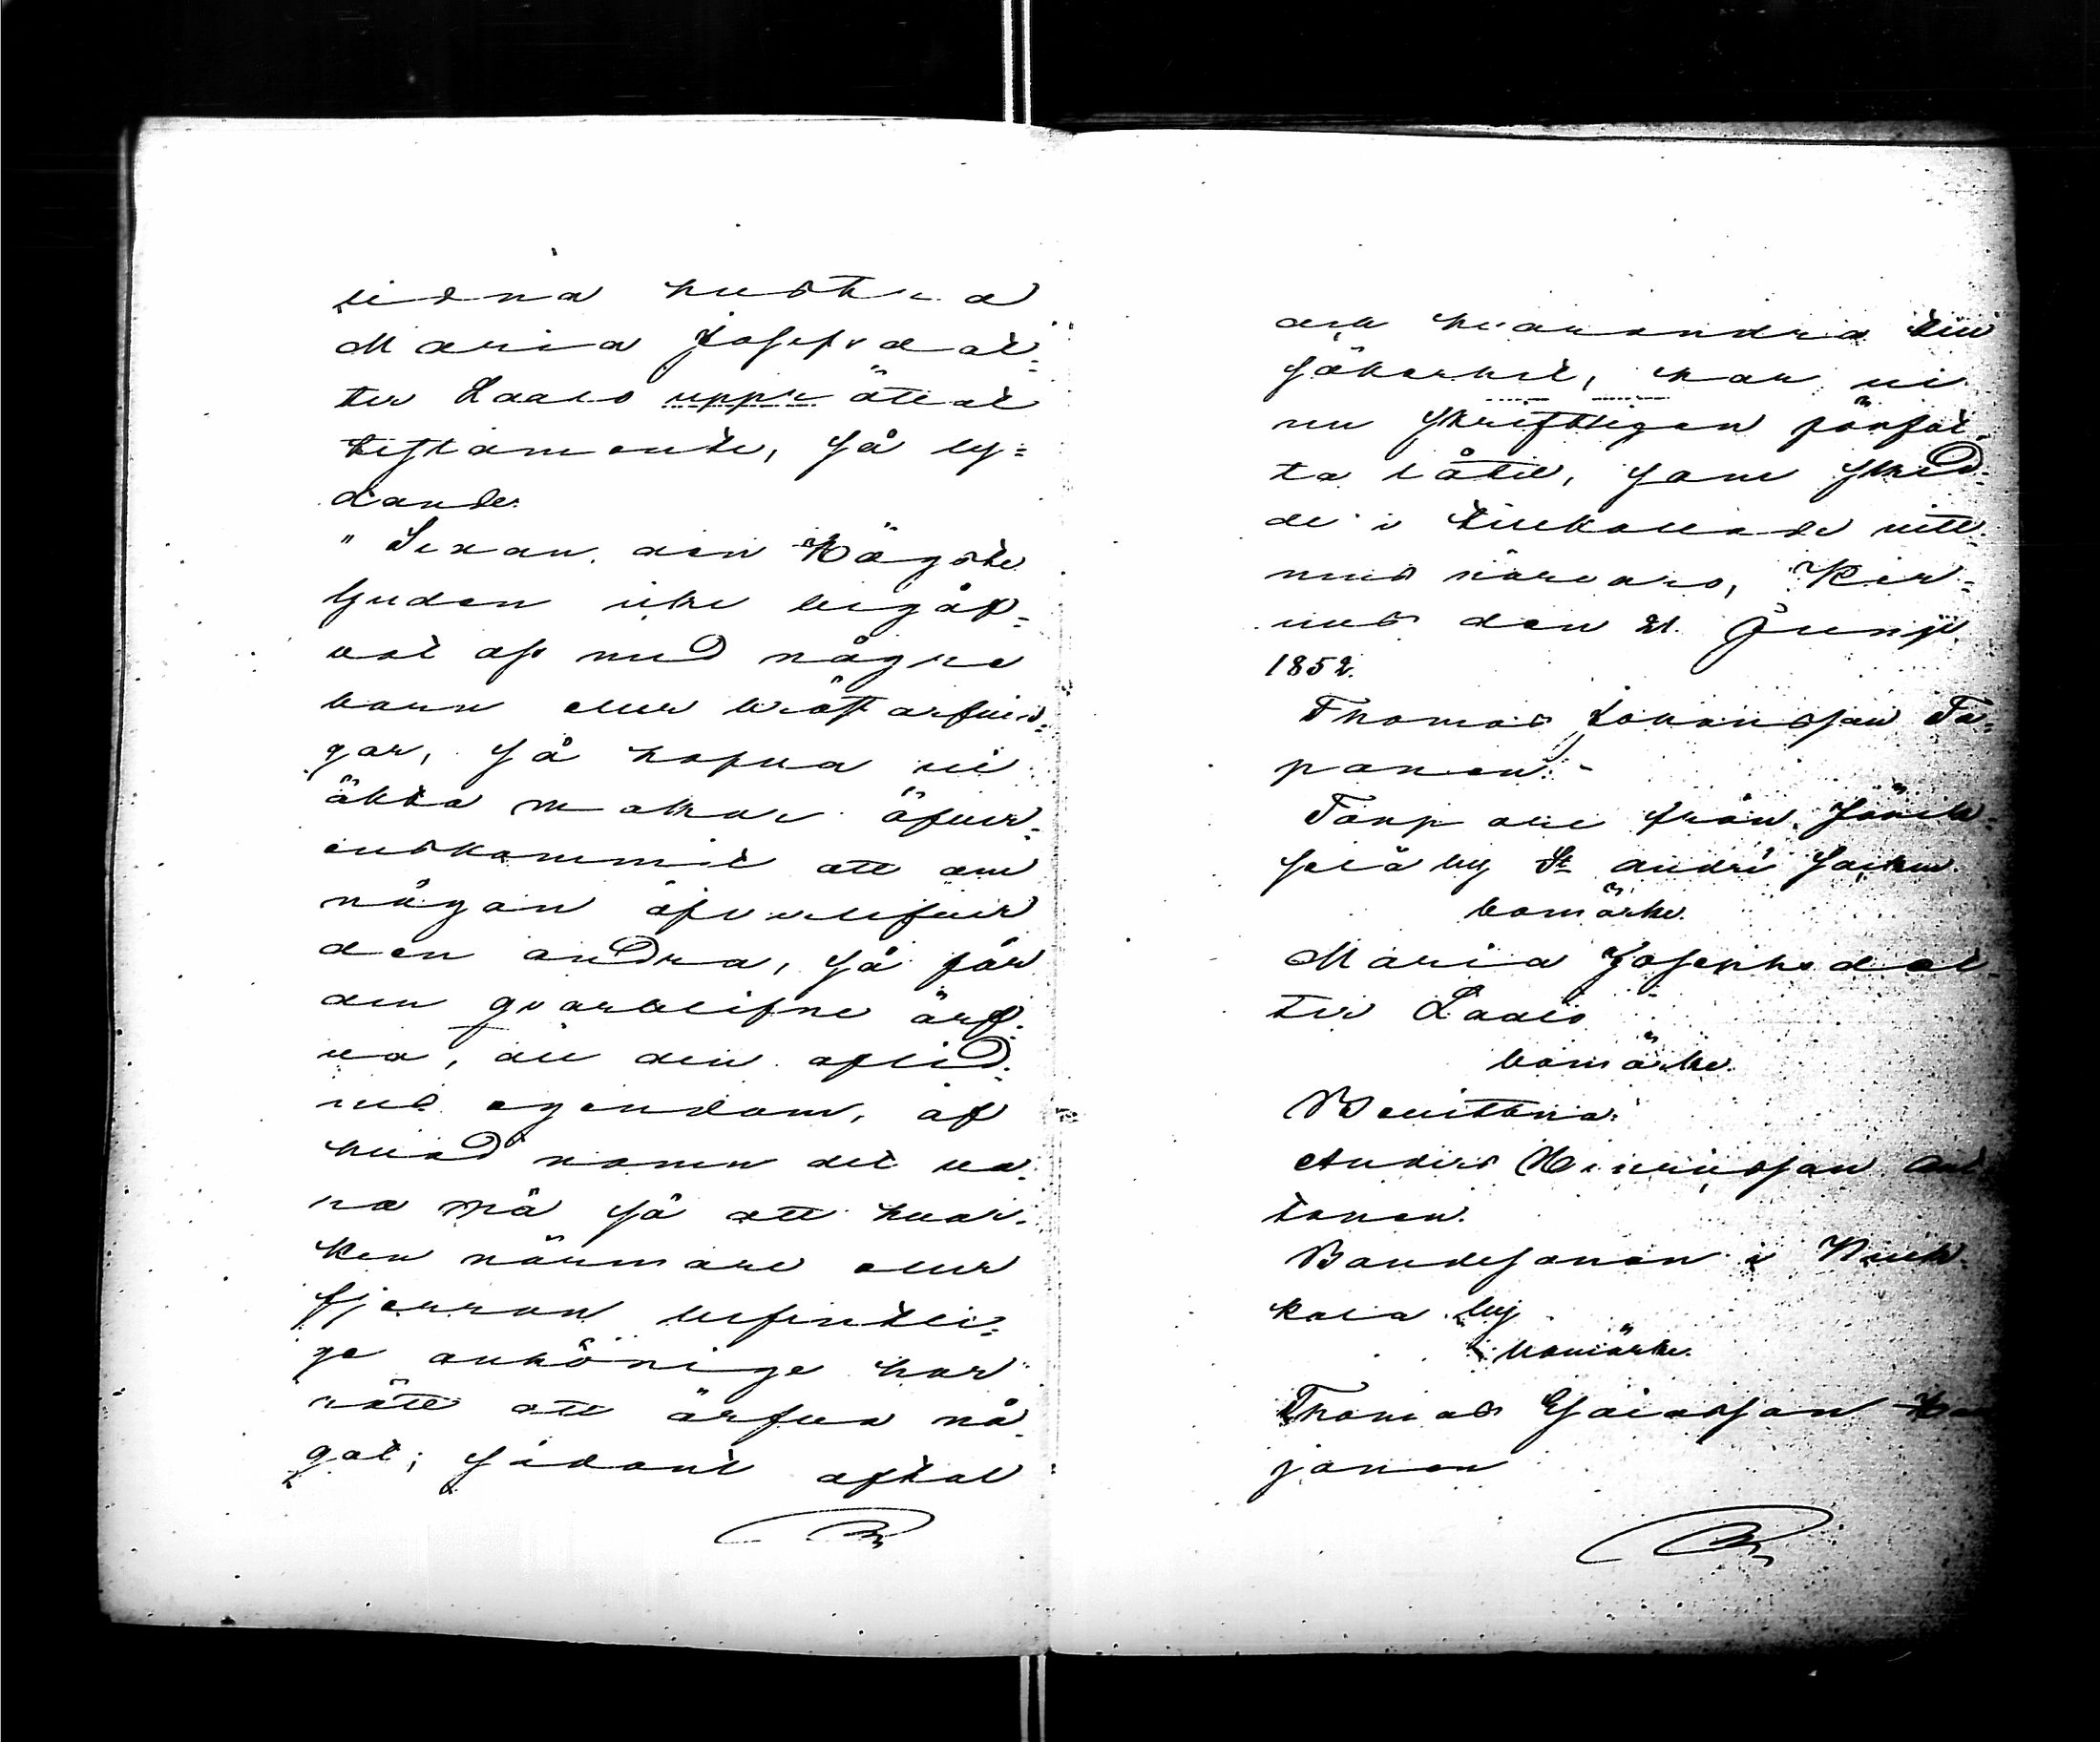 sidna hustru
Maria Josefsdot=
ter Laals uppr ättat
testamente, så ly=
dande:
" Sedan den Högste
Guden icke begåf=
vat oss med några
barn eller bröstarfvin=
gar, så hafva vi
äkta makar öfver=
enskommit att om
någon öfverlefver
den andra, så får
den qvarblifne ärf=
va, all den aflid=
nes egendom, af
hvad namn det va=
ra må så att hvar=
ken närmare eller
fjerran befintli=
ge anhörige har
rätt att ärfva nå=
got; sådant aftal
och hvarandra till
säkerhet, har vi
nu skriftligen förfat=
ta låtit, som sked=
de i tillkallade vitt=
nens närvaro, Kir=
vus den 21. Junii
1852.
Thomas Johansson Ta=
panen.
Torpare från Jönik=
selä by St Andreæ Socken
bomärke.
Maria Josephsdot=
ter Laals
bomärke.
Bevittna:
Anders Hinricsson Ant
tonen.
Bondesonen i Kuk=
kola by
bomärke.
Thomas Esaiasson
jonen